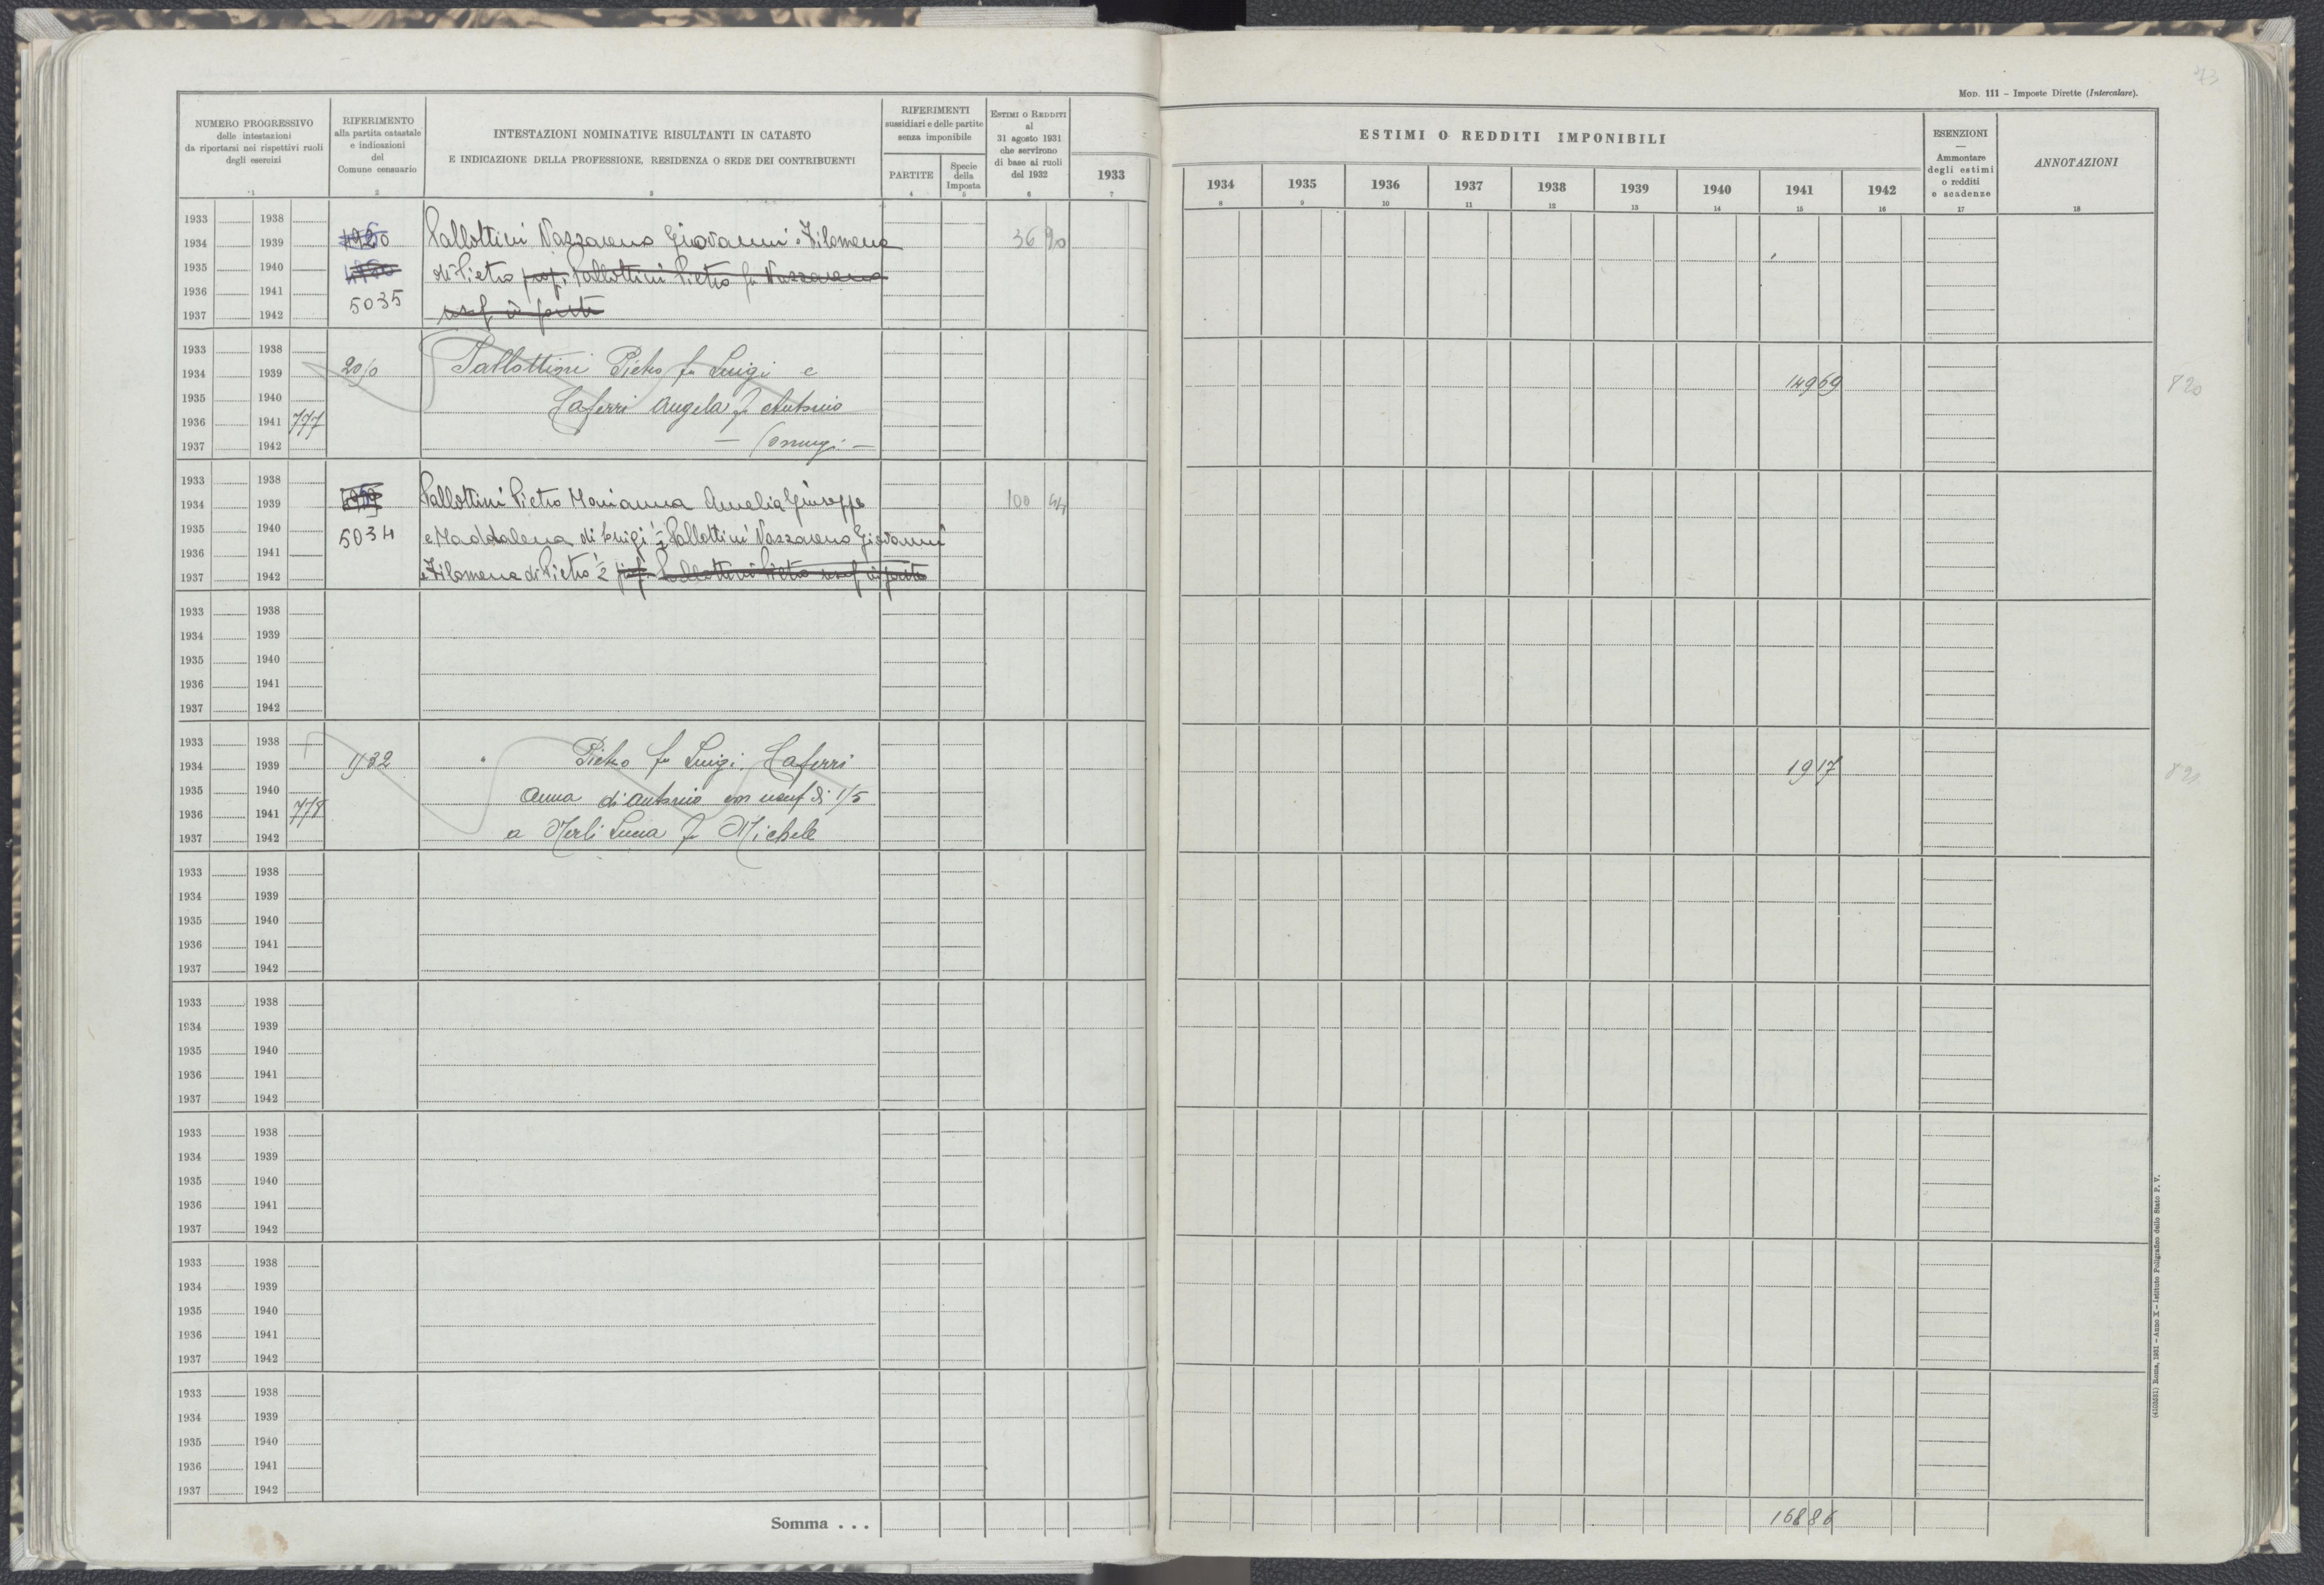 43
MOD. 111 – Imposte Dirette (Intercalare).
NUMERO PROGRESSIVO
delle intestazioni
da riportarsi nei rispettivi ruoli
degli esercizi
1
RIFERIMENTO
alla partita catastale
e indicazioni
del
Comune censuario
2
INTESTAZIONI NOMINATIVE RISULTANTI IN CATASTO
E INDICAZIONE DELLA PROFESSIONE, RESIDENZA O SEDE DEI CONTRIBUENTI
3
RIFERIMENTI
sussidiari e delle partite
senza imponibile
PARTITE
4
Specie
della
Imposta
5
ESTIMI O REDDITI
al
31 agosto 1931
che servirono
di base ai ruoli
del 1932
6
1933
7
ESTIMI O REDDITI IMPONIBILI
1934 1935 1936 1937 1938 1939 1940 1941 1942
8 9 10 11 12 13 14 15 16
ESENZIONI
—
Ammontare
degli estimi
o redditi
e scadenze
17
ANNOTAZIONI
18
1933 1938
1934 1939 Pallottini Nazzareno Giovanni e Filomena 36 90
1935 1940 di Pietro prop. Pallottini Pietro fu Nazzareno
1936 1941 5035
1937 1942 usuf. in parte
1933 1938
1934 1939 2010 Pallottini Pietro fu Luigi e 149 69 820
1935 1940 Caferri Angela fu Antonio
1936 1941 777
1937 1942 — Coniugi —
1933 1938
1934 1939 Pallottini Pietro Marianna Amelia Giuseppe 100 44
1935 1940 5034 e Maddalena di Luigi 1/2 Pallottini Nazzareno Giovanni
1936 1941
1937 1942 e Filomena di Pietro 1/2 prop. Pallottini Pietro usuf in parte
1933 1938
1934 1939
1935 1940
1936 1941
1937 1942
1933 1938
1934 1939 1732 " Pietro fu Luigi. Caferri 19 17 821
1935 1940 Anna di Antonio con usuf di 1/5
1936 1941 778
1937 1942 a Merli Lucia fu Michele
1933 1938
1934 1939
1935 1940
1936 1941
1937 1942
1933 1938
1934 1939
1935 1940
1936 1941
1937 1942
1933 1938
1934 1939
1935 1940
1936 1941
1937 1942
1933 1938
1934 1939
1935 1940
1936 1941
1937 1942
1933 1938
1934 1939
1935 1940
1936 1941
1937 1942
Somma . . . 168 86
(4103581) Roma, 1931 – Anno X – Istituto Poligrafico dello Stato P. V.